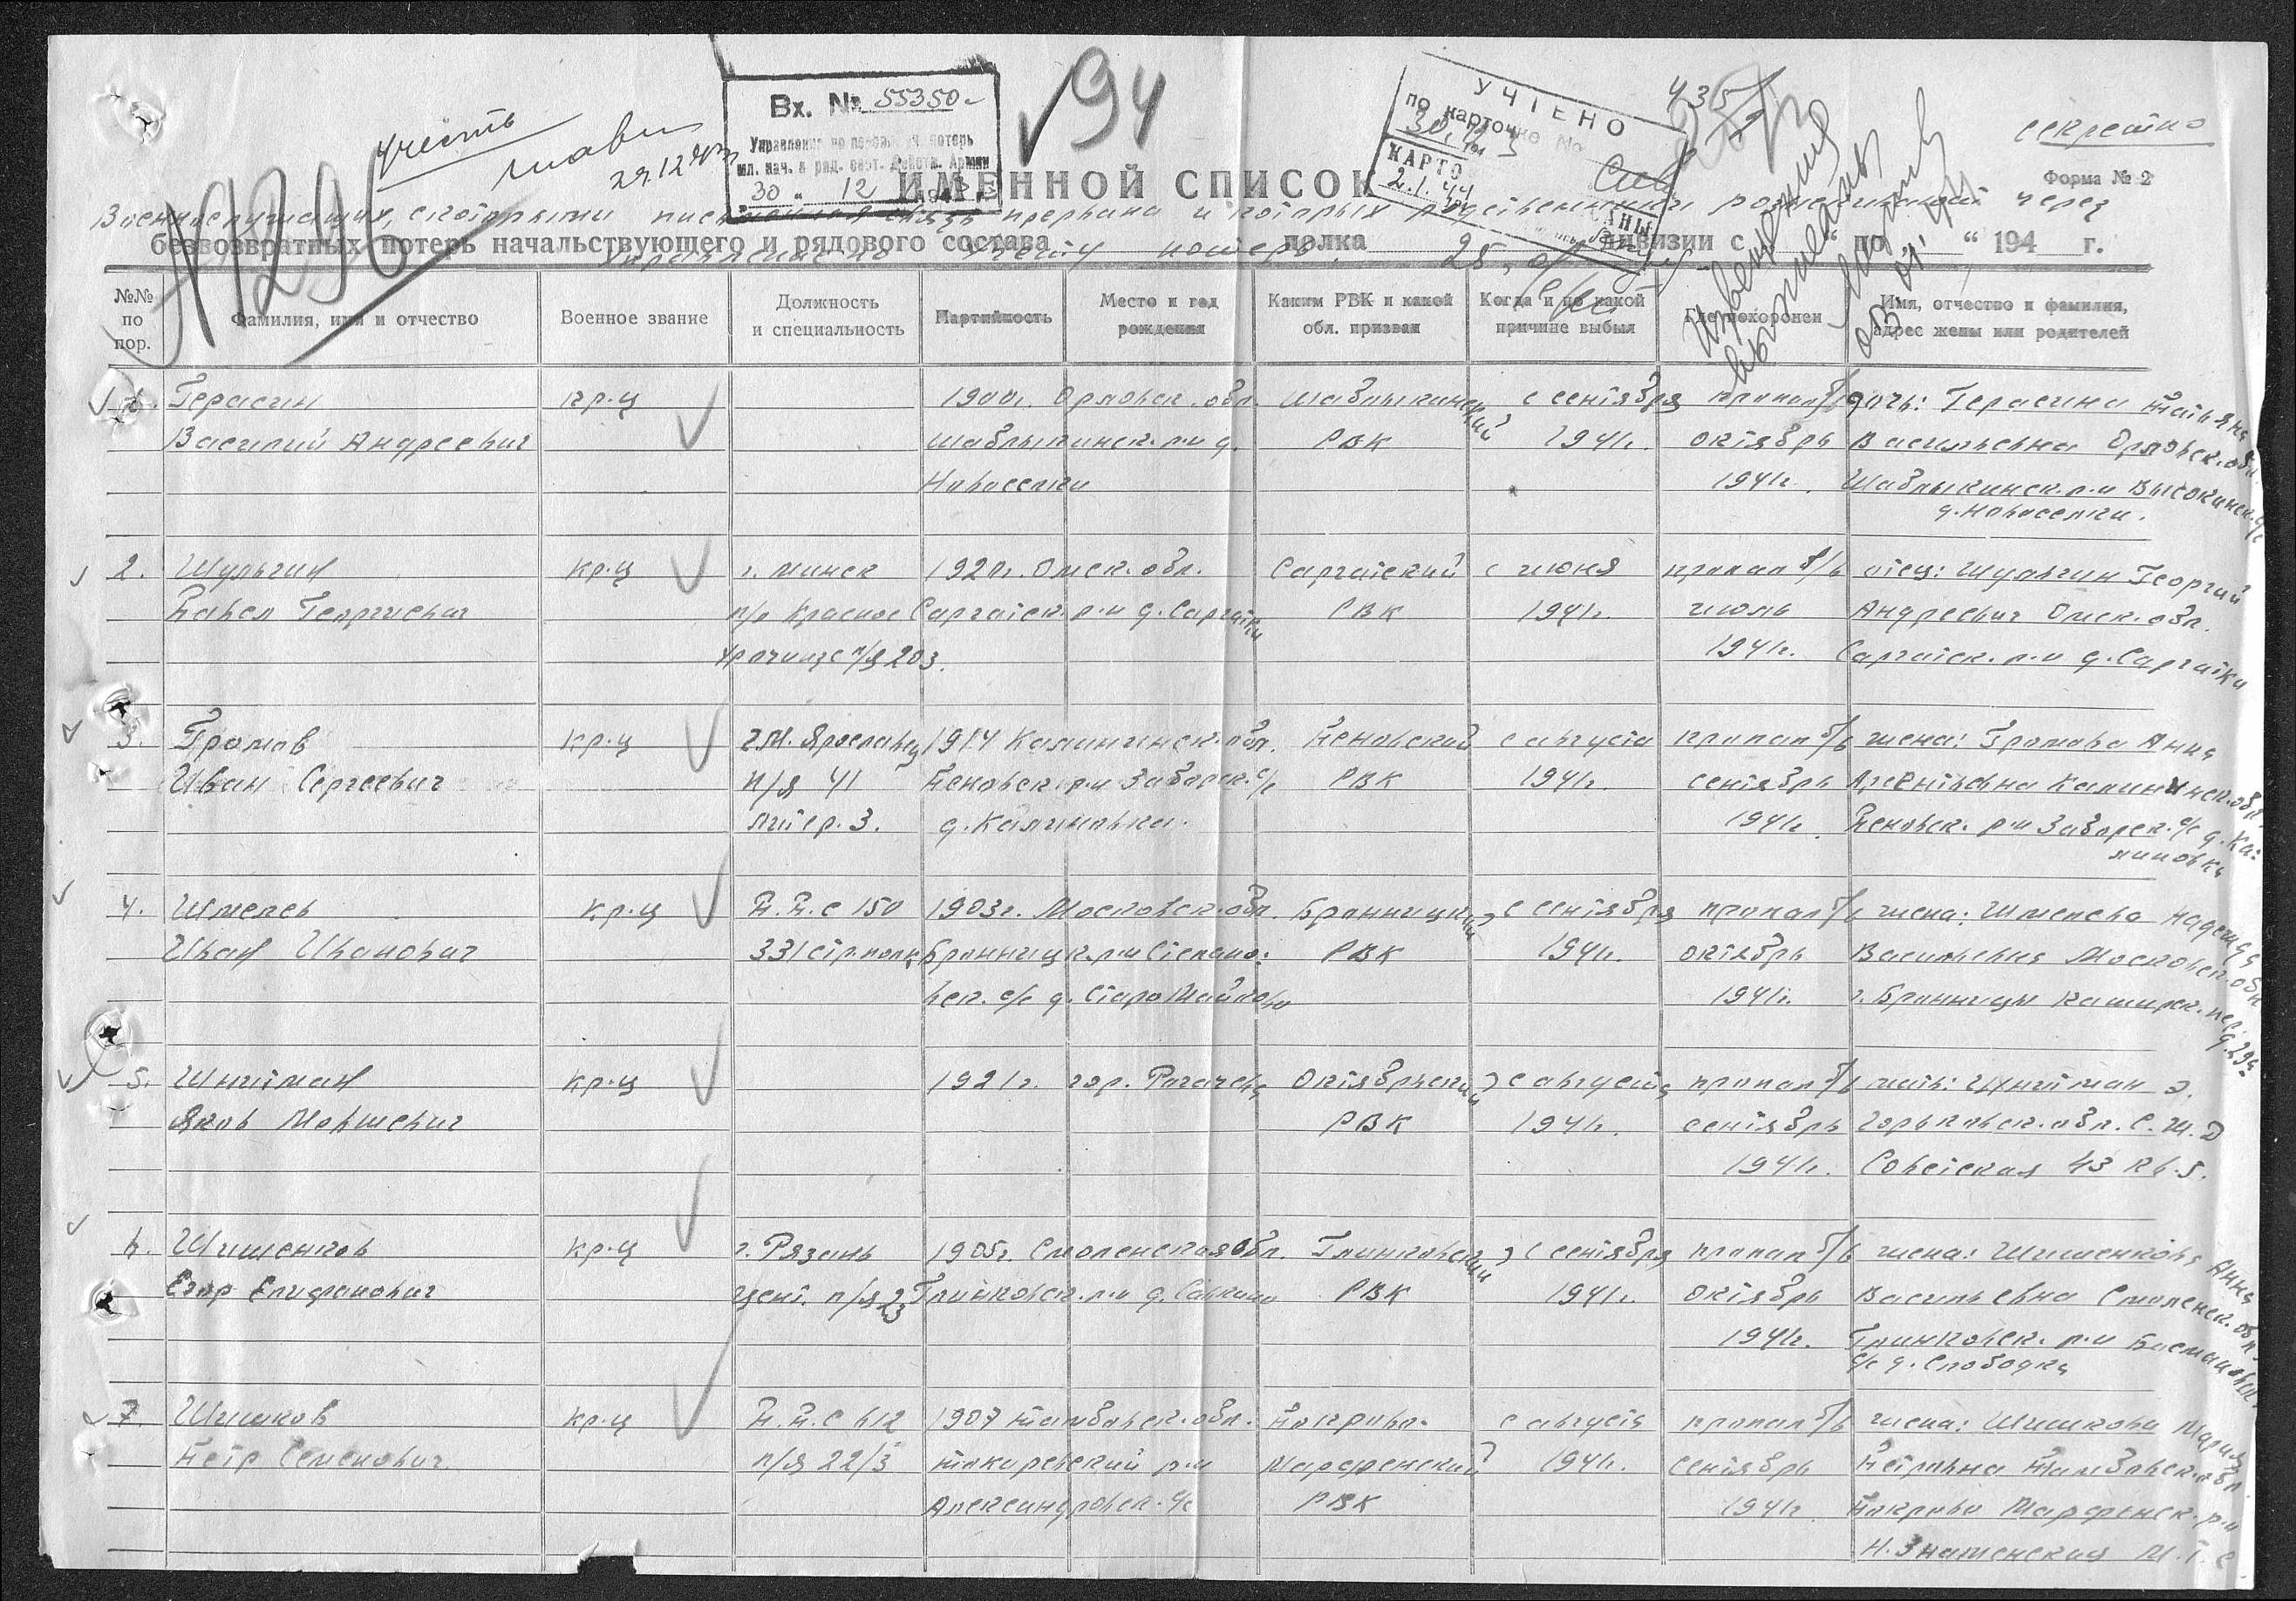 Вх. № 55350
Управление по персон. уч. потерь
мл. нач. и ряд. сост. Действ. Армии
30 " 12 194
94
УЧТЕНО
по карточке №
КАРТО
2.1.44
435
секретно
Форма № 2
N1296
учесть
29.12
Извещения
высланы
ИМЕННОЙ СПИСОК
Военнослужащих, с которыми письменная связь прервана и которых родственники разыскивают через
безвозвратных потерь начальствующего и рядового состава полка дивизии с “ по “ 194 г.
Управление по учету потерь.
№№ по пор. Фамилия, имя и отчество Военное звание Должность и специальность Партийность Место и год рождения Каким РВК и какой обл. призван Когда и по какой причине выбыл Где похоронен Имя, отчество и фамилия, адрес жены или родителей
1. Герасин кр-ц 1900г. Орловск. обл. Шаблыкинский с сентября пропал б/в дочь: Герасина Татьяна
Василий Андреевич Шаблыкинск. р-н д. РВК 1941г. октябрь Васильевна Орловск. обл.
Новоселки 1941г. Шаблыкинск. р-н Высокинск. с/с
д. Новоселки.
2. Шульгин кр-ц г. Минск 1920г. Омск. обл. Саргатский с июня пропал б/в отец: Шульгин Георгий
Павел Георгиевич п/о Красное Саргатск. р-н д. Саргатки РВК 1941г. июль Андреевич Омск. обл.
Урочище п/я 203. 1941г. Саргатск. р-н д. Саргатки
3. Громов кр-ц г. М. Ярославец 1914 Калининск. обл. Пеновский с августа пропал б/в жена: Громова Анна
Иван Сергеевич п/я 41 Пеновск. р-н Заборск. с/с РВК 1941г. сентябрь Арсентьевна Калининск. обл.
литер. 3. д. Калиновка. 1941г. Пеновск. р-н Заборск. с/с д. Ка-
линовка
4. Шмелев кр-ц П.П.С 150 1903г. Московск. обл. Бронницкий с сентября пропал б/в жена: Шмелева Надежда
Иван Иванович 331 стр. полк Бронницк. р-н Степано- РВК 1941г. октябрь Васильевна Московск. обл
вск. с/с д. Старо Майково 1941г. г. Бронницы Каширск. пер.
д. 29а
5. Шнитман кр-ц 1921г. гор. Рогачев Октябрьский с августа пропал б/в мать: Шнитман Э.
Яков Мовшевич РВК 1941г. сентябрь Горьковск. обл. С.Ш.Д
1941г. Советская 43 кв. 5.
6. Шишенков кр-ц г. Рязань 1905г. Смоленская обл. Глинковский с сентября пропал б/в жена: Шишенкова Анна
Егор Епифанович цент. п/я 23 Глинковск. р-н д. Савкино РВК 1941г. октябрь Васильевна Смоленск. обл.
1941г. Глинковск. р-н
с/с д. Слободка
7. Шишков кр-ц П.П.С 612 1907 Тамбовск. обл. Покрово- с августа пропал б/в жена: Шишкова Мария
Петр Семенович п/я 22/3 Токаревский р-н Марфенский 1941г. сентябрь Петровна Тамбовск. обл.
Александровск. с/с РВК 1941г. Покрово Марфенск. р-н
Н. Знаменская М.Т.С